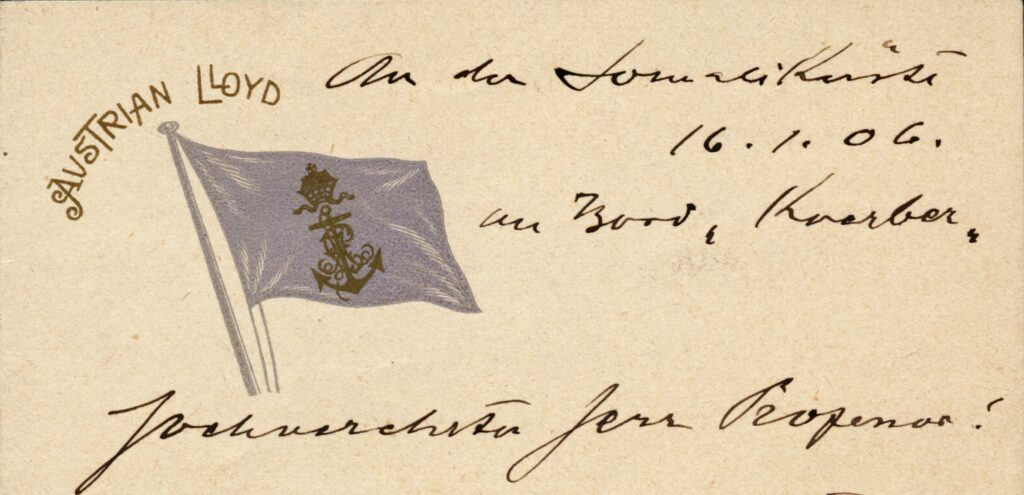 AUSTRIAN LLOYD
An der Somali Küste
16.1.06.
an Bord „Koerber„
Hochverehrter Herr Professor!